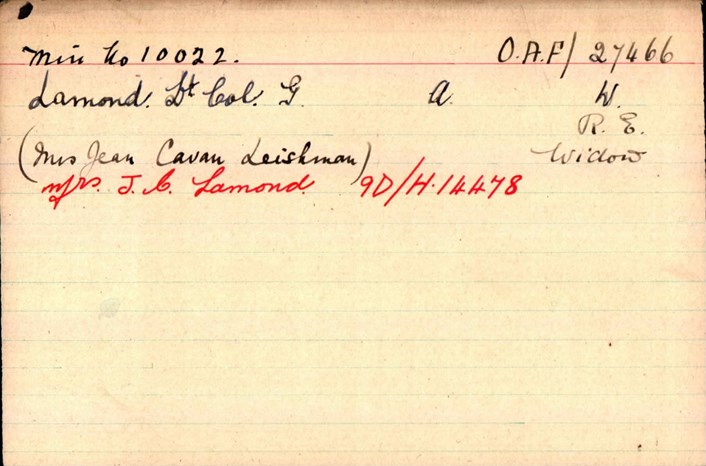 Min No 10022. O.A.F/ 27466
Lamond. Lt Col. G. A. W.
R. E.
(Mrs Jean Cavan Leishman) Widow
Mrs. J. C. Lamond. 9D/H.14478